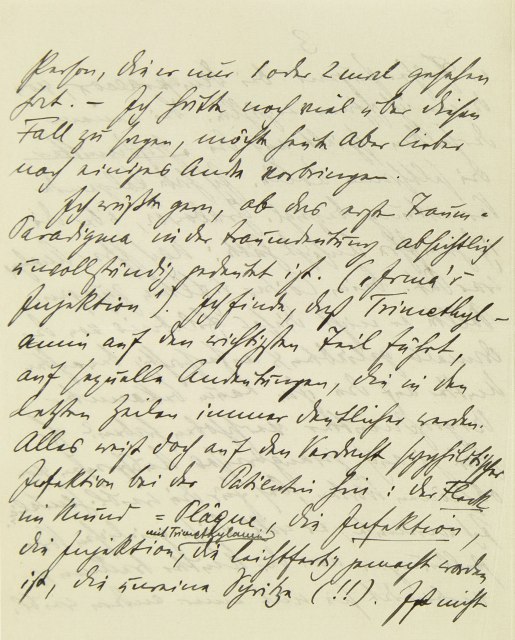 Person, die er nur 1 oder 2 mal gesehen
hat. – Ich hätte noch viel über diesen
Fall zu sagen, möchte heute aber lieber
noch einiges Andre vorbringen.
Ich wüßte gern, ob das erste Traum-
Paradigma in der Traumdeutung absichtlich
unvollständig gedeutet ist. („Irma's
Injektion“). Ich finde, daß Trimethyl-
amin auf den wichtigsten Teil führt,
auf sexuelle Andeutungen, die in den
letzten Zeilen immer deutlicher werden.
Alles weist doch auf den Verdacht syphilitischer
Infektion bei der Patientin hin: der Fleck
im Mund = Plaque, die Infektion,
die Injektion mit Trimethylamin, die leichtfertig gemacht worden
ist, die unreine Spritze (!!). Ist nicht